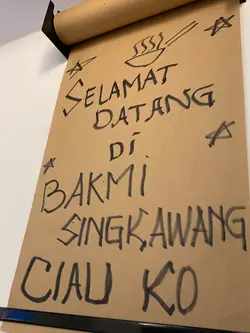 SELAMAT
DATANG
Di
BAKMi
SINGKAWANG
CIAU KO